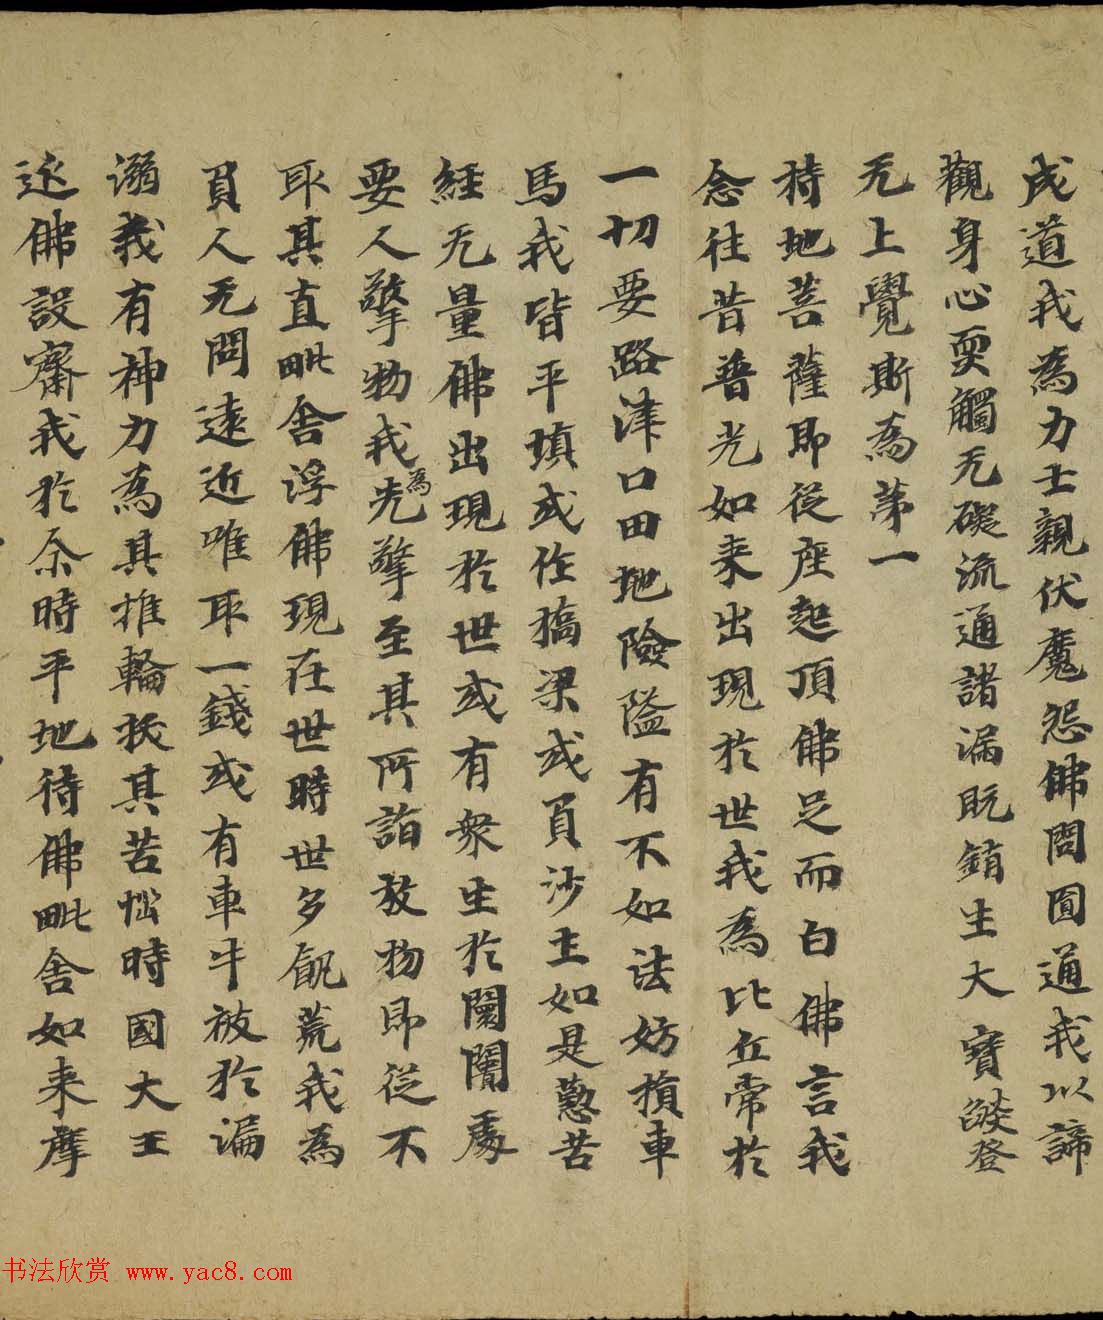 成道我為力士親伏魔怨佛問圓通我以諦
觀身心耎觸无礙流通諸漏既銷生大寶燄登
无上覺斯為苐一
持地菩薩即從座起頂佛足而白佛言我
念往昔普光如来出現於世我為比丘常於
一切要路津口田地險隘有不如法妨損車
馬我皆平填或作橋梁或負沙土如是懃苦
經无量佛出現於世或有衆生於闤闠處
要人擎物我先為擎至其所詣放物即從不
取其直毗舍浮佛現在世時世多飢荒我為
負人无問遠近唯取一錢或有車牛被於漏
溺我有神力為其推輪拔其苦惱時國大王
延佛設齋我於尒時平地待佛毗舍如来摩
书法欣赏 www.yac8.com